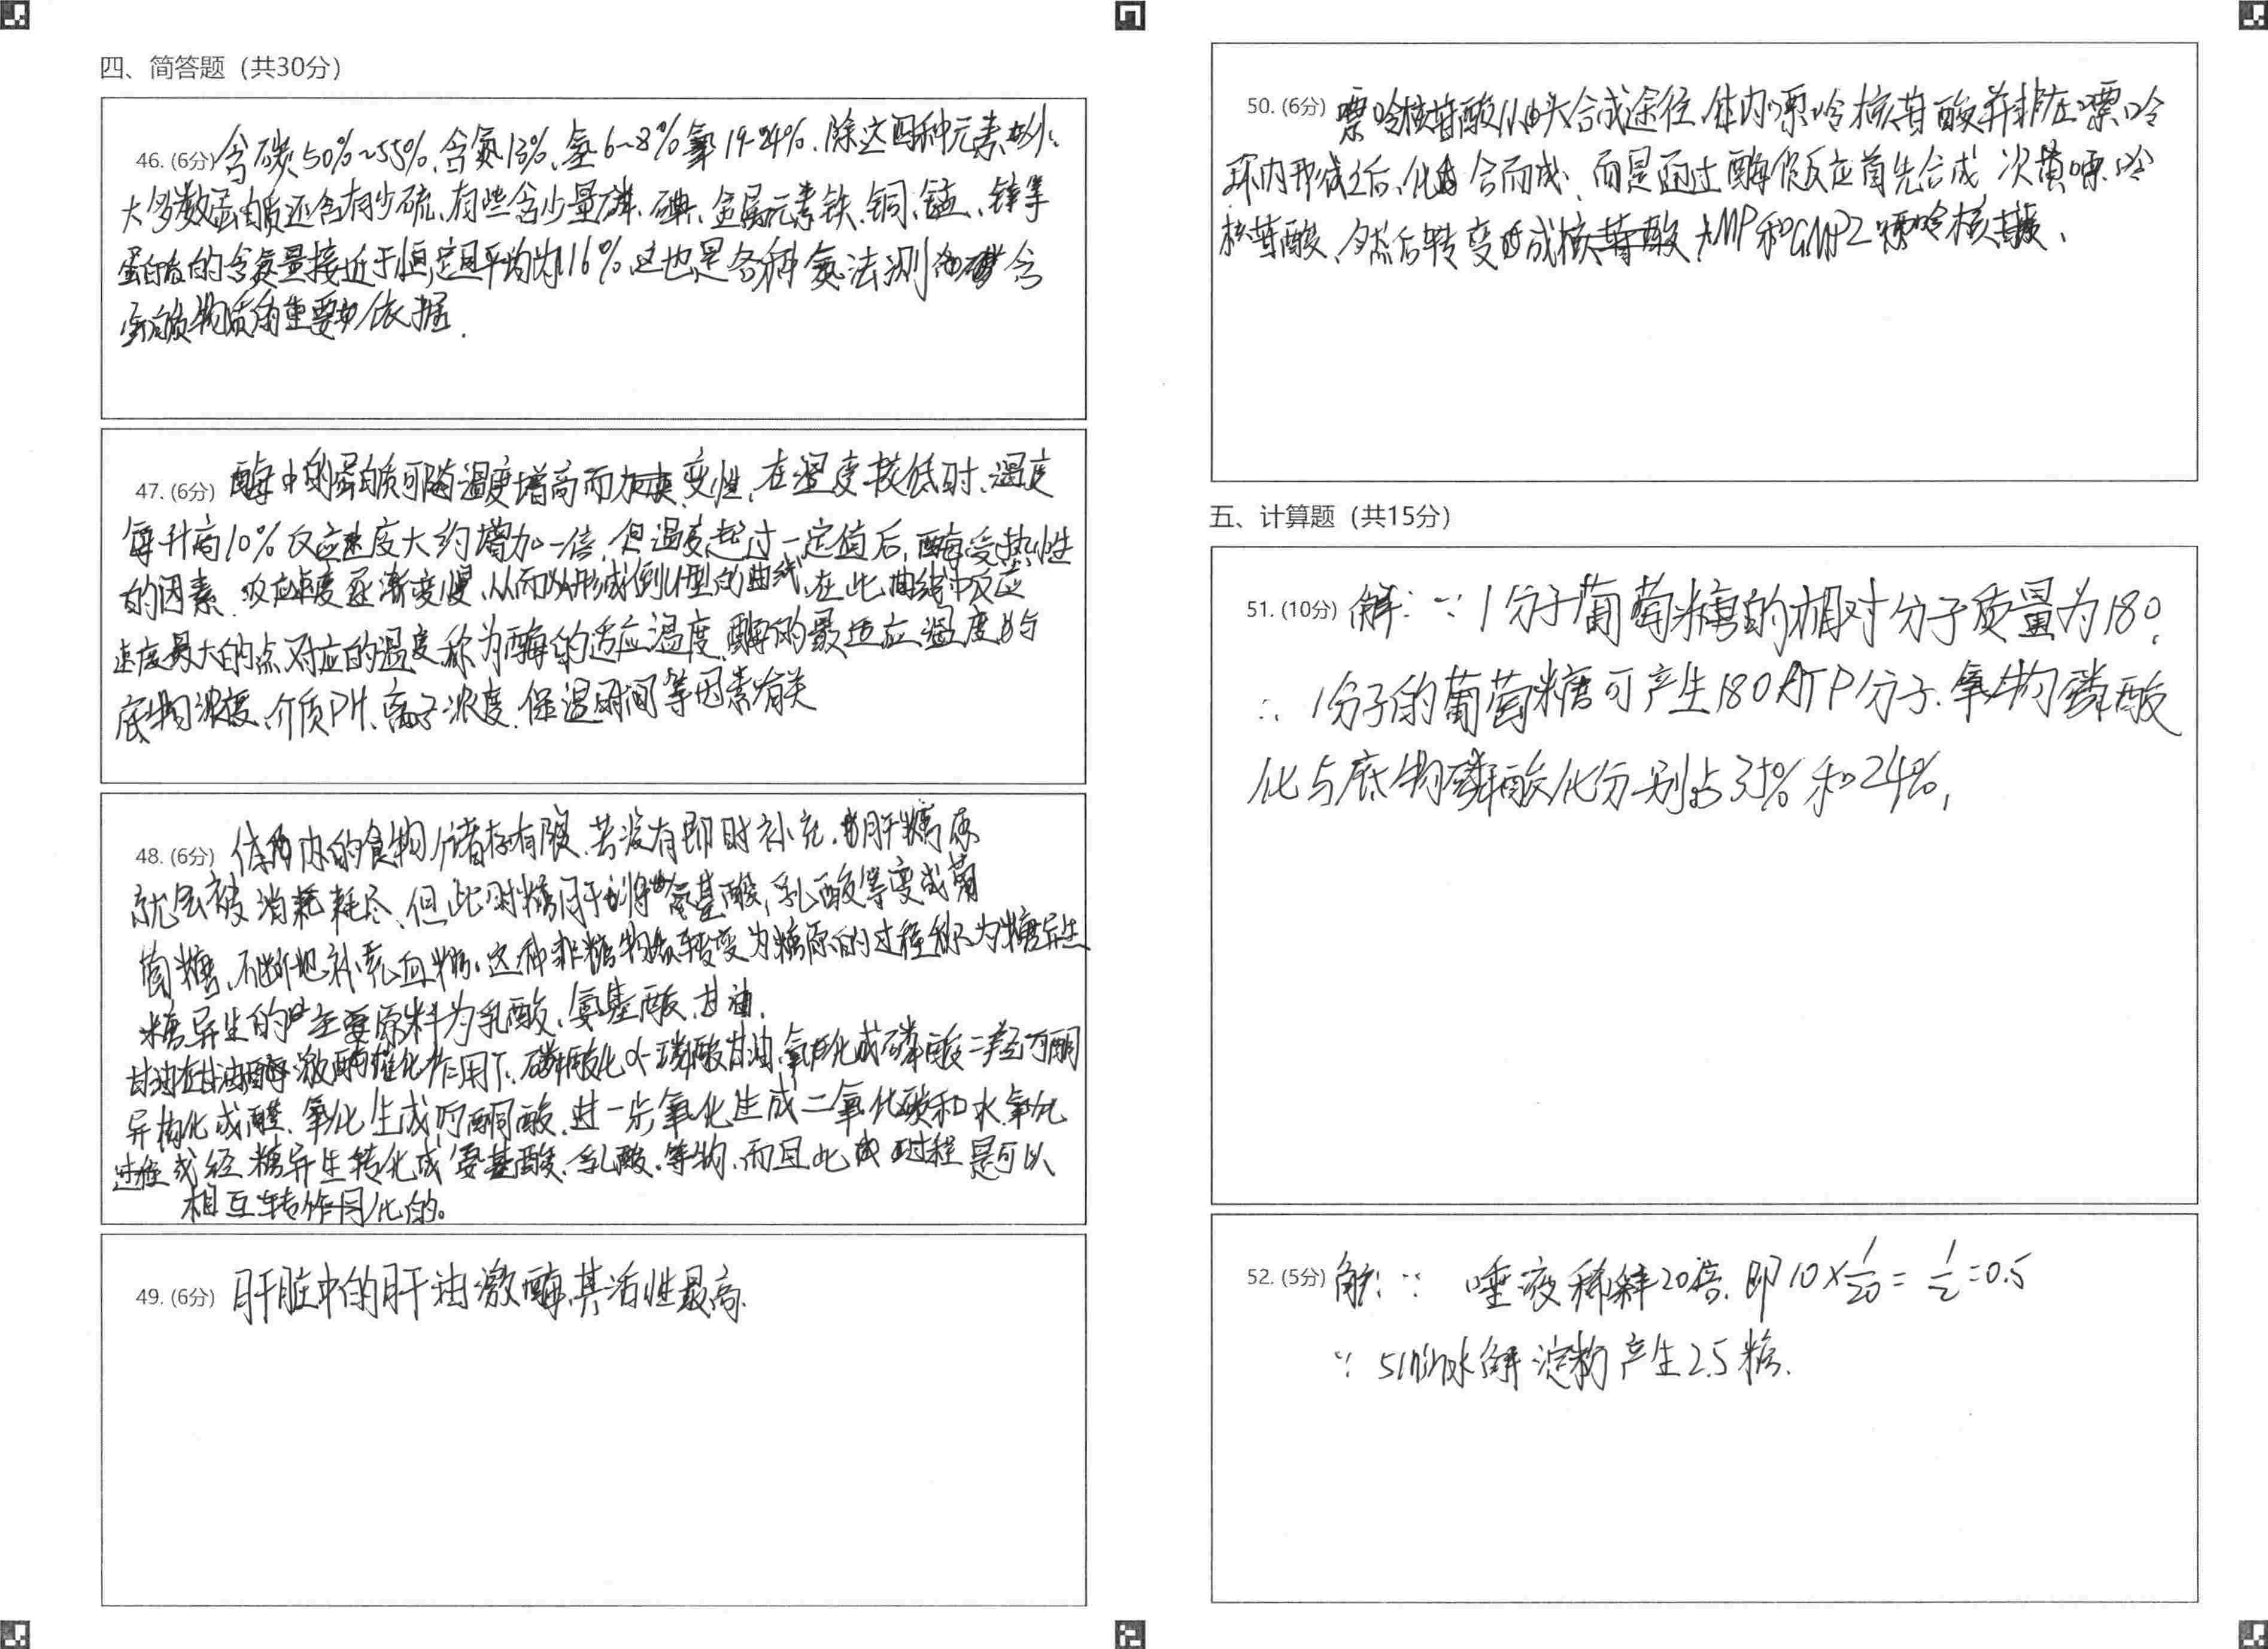 四、简答题（共30分）
46. (6分) 含碳50%~55%、含氮13%、氢6~8%氧19-24%.除这四种元素外、
大多数蛋白质还含有少硫、有些含少量磷、碘、金属元素铁、铜、锰、锌等
蛋白质的含氮量接近于恒定且平均为16%,这也是各种氮法测含
蛋白质物质的重要依据.
47. (6分) 酶中的蛋白质可随温度增高而加速变性,在温度较低时、温度
每升高10%反应速度大约增加一倍,但温度超过一定值后,酶受热性
的因素.反应速度逐渐变慢、从而形成倒U型的曲线,在此曲线中反应
速度最大的点对应的温度称为酶的适应温度,酶的最适应温度与
底物浓度、介质PH、离子浓度.保温时间等因素有关
48. (6分) 体内的食物储存有限.若没有即时补充,肝糖原
就会被消耗耗尽、但此时糖肝将氨基酸,乳酸等变成葡
萄糖,不断地补充血糖.这种非糖物质转变为糖原的过程称为糖异生
糖异生的主要原料为乳酸、氨基酸、甘油.
甘油在甘油激酶催化作用下、磷酸化α-磷酸甘油.氧化成磷酸二羟丙酮
异构化成醛、氧化生成丙酮酸.进一步氧化生成二氧化碳和水,氧化
过程或经糖异生转化成氨基酸、乳酸.等物.而且此过程是可以
相互转作用化的。
49. (6分) 肝脏中的肝油激酶,其活性最高.
50. (6分) 嘌呤核苷酸从头合成途径,体内嘌呤核苷酸并非在嘌呤
环内形成之后、化合而成、而是通过酶促反应首先合成 次黄嘌呤
核苷酸、然后转变成 AMP和GMP 嘌呤核苷酸、
五、计算题（共15分）
51. (10分) 解：∵1分子葡萄糖的相对分子质量为180,
∴1分子的葡萄糖可产生180ATP分子.氧物磷酸
化与底物磷酸化分别占35%和24%,
52. (5分) 解:∵ 唾液稀释20倍.即10×1/20=1/2=0.5
∵ 5min水解淀粉产生2.5糖.